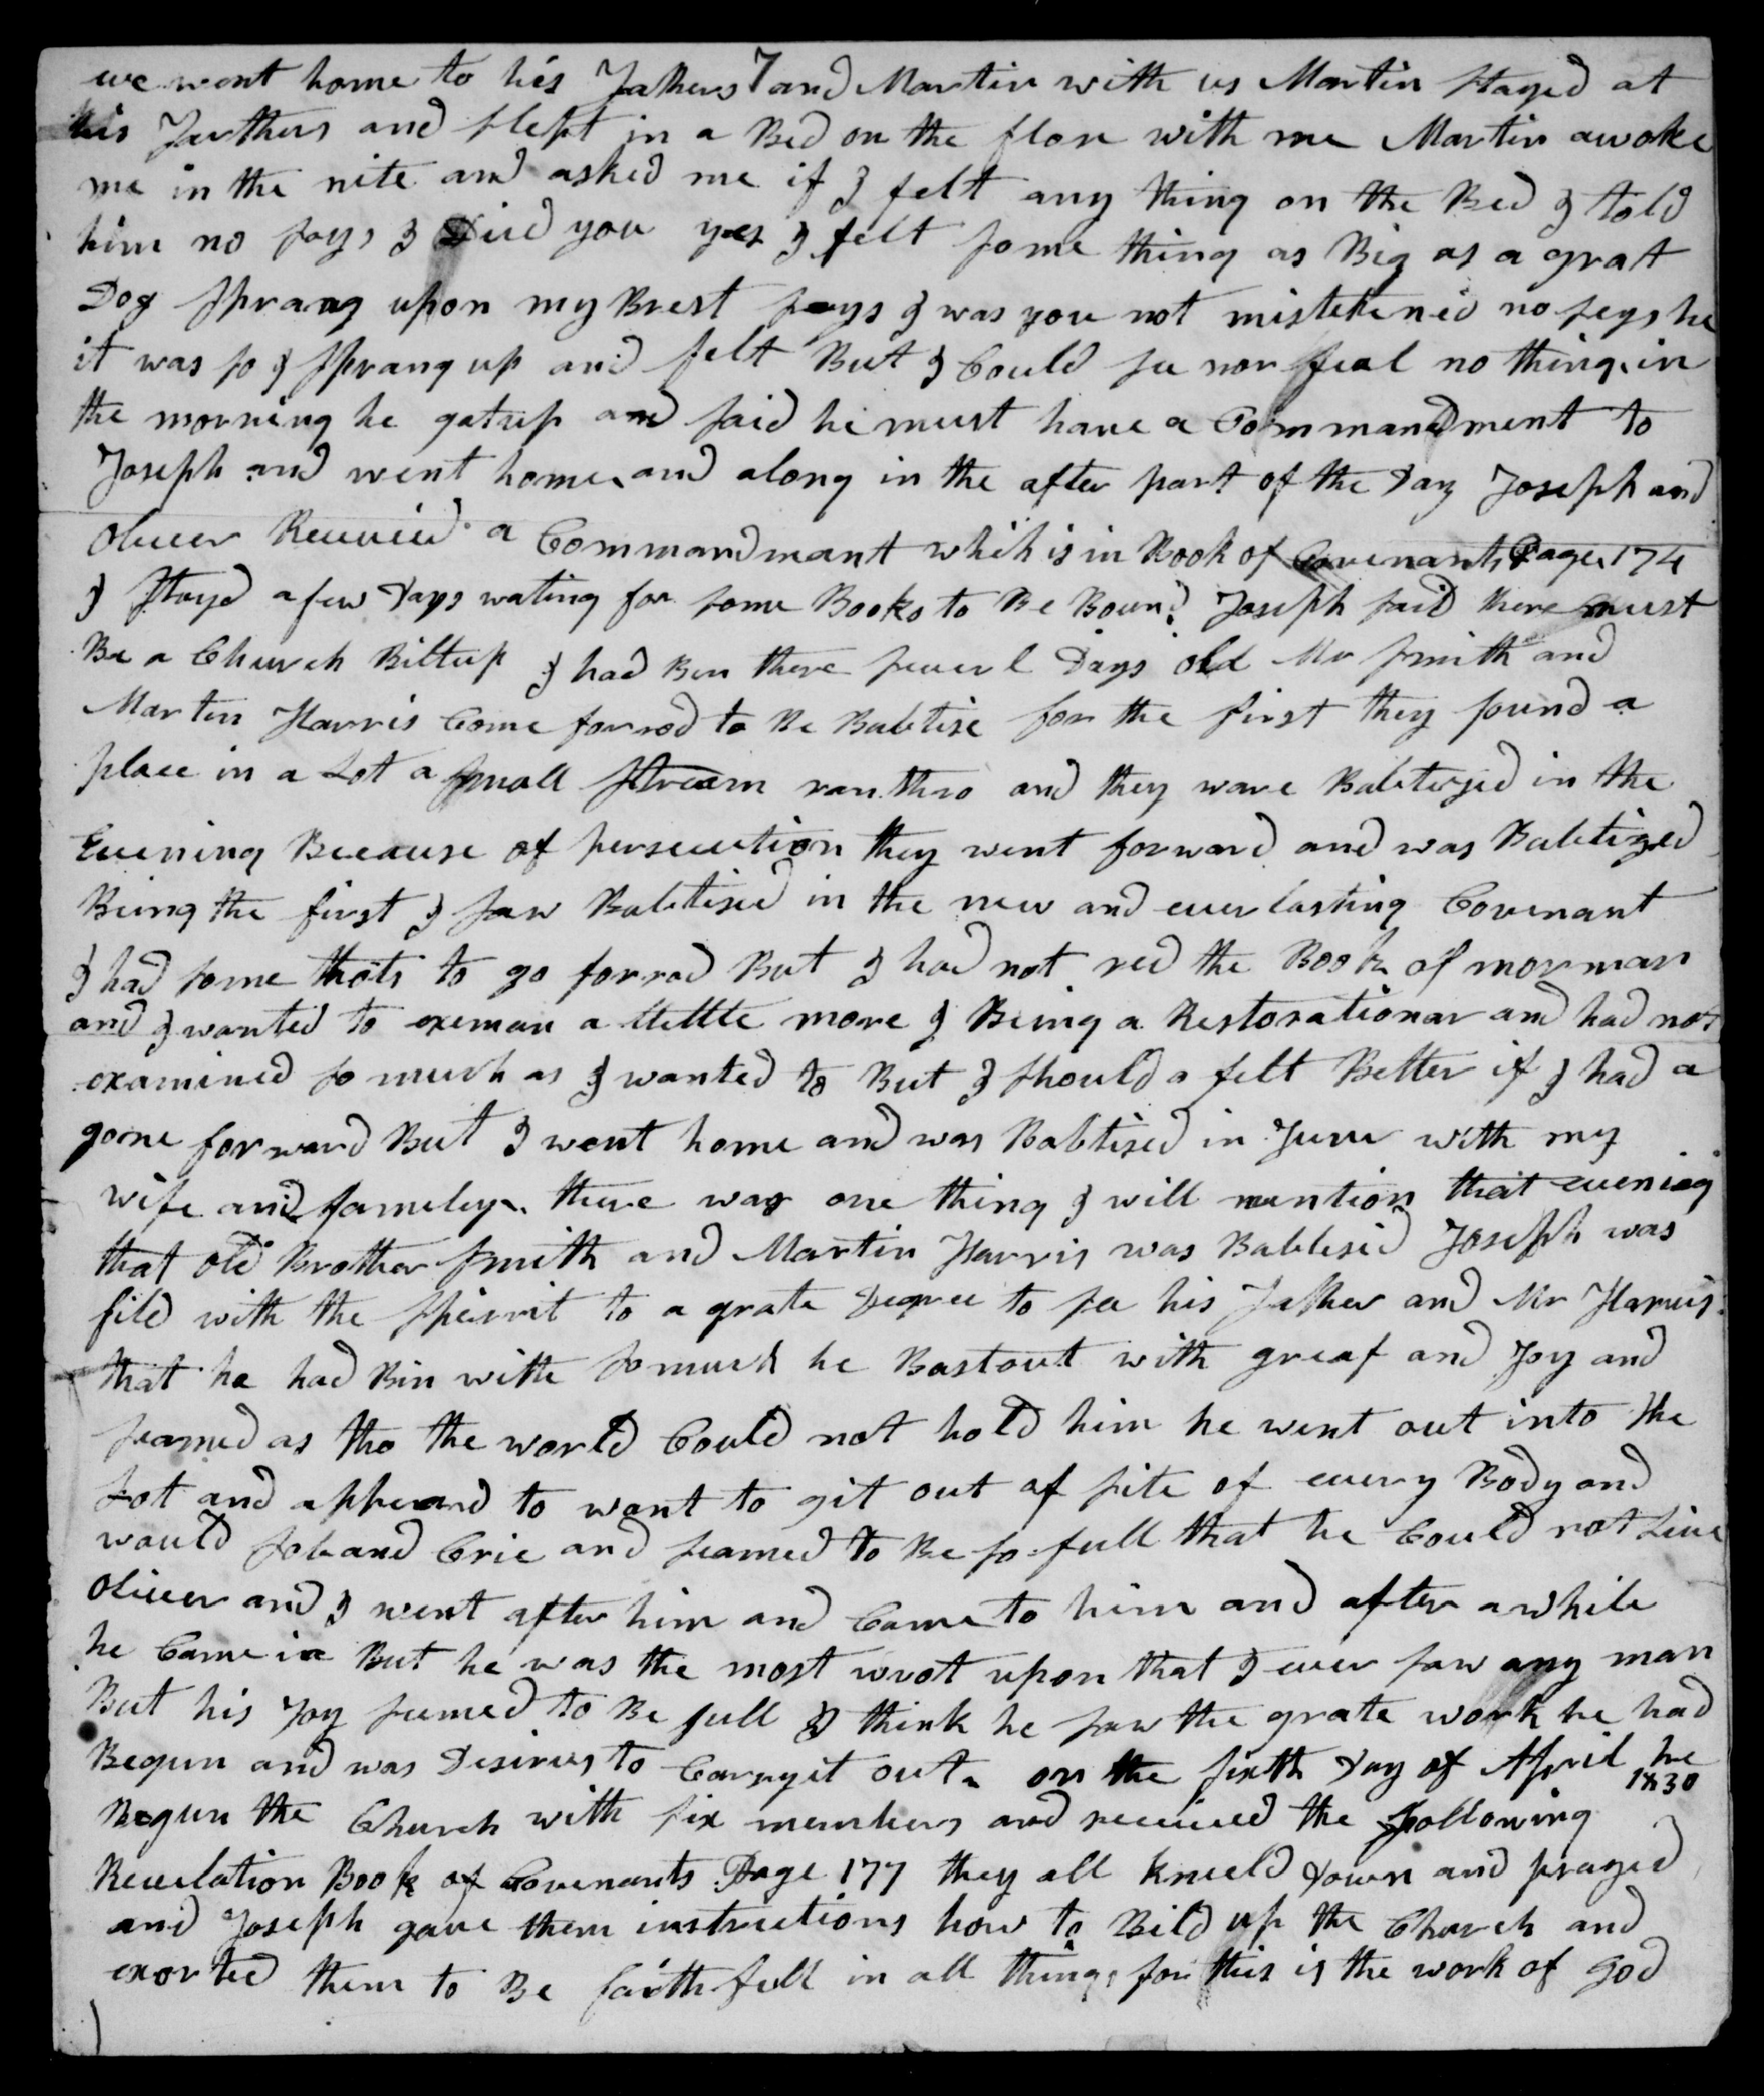 we went home to his Fathers and Martin with us Martin Stayed at
his Farthers and slept in a Bed on the flore with me Martin awoke
me in the nite and asked me if I felt any thing on the Bed I told
him no says I Did you yes I felt some thing as Big as a grat
Dog Sprang upon my Brest says I was you not mistekened no says he
it was so I Sprang up and felt But I Could see nor feal no thing. in
the morning he got up and said he must have a Commandment to
Joseph and went home. and along in the after part of the Day Joseph and
Oliver Received a Commandmant which is in Book of Covenants Page 174
I Stayd a few Days wating for some Books to Be Bound Joseph said there must
Be a Church Biltup I had Ben there several Days old Mr Smith and
Martin Harris Come forrod to Be Babtise for the first they found a
place in a Lot a small Stream ran thro and they ware Babtized in the
Evening Because of persecution they went forward and was Babtized
Being the first I saw Babtised in the new and everlasting Covenant
I had some thots to go forrod But I had not red the Book of morman
and I wanted to exeman a little more I Being a Restorationar and had not
examined so much as I wanted to But I should a felt Better if I had a
gone forward But I went home and was Babtised in June with my
wife and famelyn. there was one thing I will mention that evening
that old Brother Smith and Martin Harris was Babtised Joseph was
fild with the Spirrit to a grate Degree to see his Father and Mr Harris
that he had Bin with so much he Bast out with greaf and Joy and
seamed as tho the world Could not hold him he went out into the
Lot and appeard to want to git out of site of every Body and
would sob and Crie and seamed to Be so full that he Could not live
Oliver and I went after him and Came to him and after a while
he Came in But he was the most wrot upon that I ever saw any man
But his Joy seemed to Be full I think he saw the grate work he had
Begun and was Desirus to Carry it out. on the sixth Day of April he
1830
Begun the Church with six members and received the following
Revelation Book of Covenants Page 177 they all kneeld down and prayed
and Joseph gave them instructions how to Bild up the Church and
exorted them to Be faithfull in all things for this is the work of God